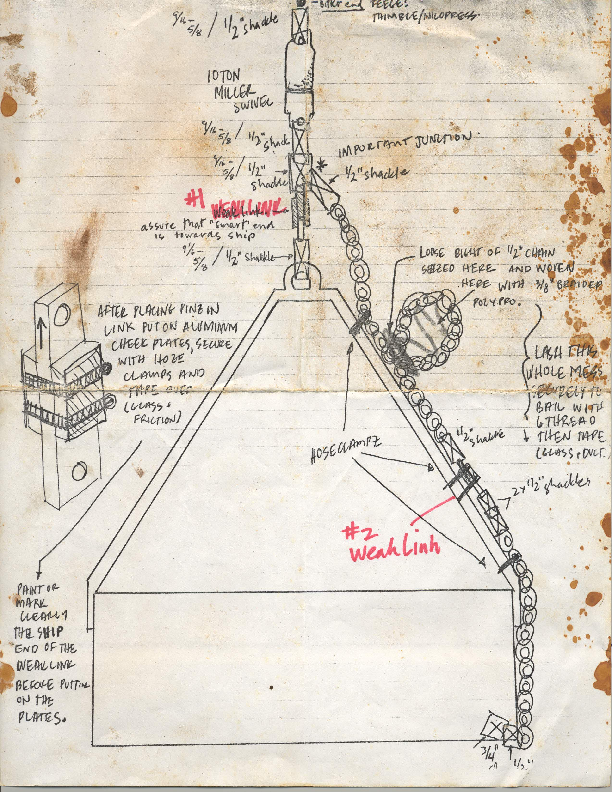 9/16- 5/8 / 1/2" shackle
THIMBLE/NICOPRESS.
10 TON
MILLER
SWIVEL
9/16- 5/8 / 1/2" shackle
9/16- 5/8 / 1/2" shackle
* IMPORTANT JUNCTION.
1/2" shackle
#1 WEAK LINK
assure that "smart" end
is towards ship
9/16- 5/8 / 1/2" shackle
LOOSE BIGHT OF 1/2" CHAIN
SEIZED HERE AND WOVEN
HERE WITH 3/8" BRAIDED
POLYPRO.
AFTER PLACING PINZ IN
LINK PUT ON ALUMINUM
CHEEK PLATES, SECURE
WITH HOZE
CLAMPS AND
TAPE OVER
(GLASS &
FRICTION)
LASH THIS
WHOLE MESS
TO
BAIL WITH
6 THREAD
THEN TAPE
(GLASS & DUCT.
HOSECLAMPZ
1/2" shackle
2x 1/2" shackles
#2
Weak Link
PAINT OR
MARK
CLEARLY
THE SHIP
END OF THE
WEAK LINK
BEFORE PUTTING
ON THE
PLATES.
3/4"
1/2"